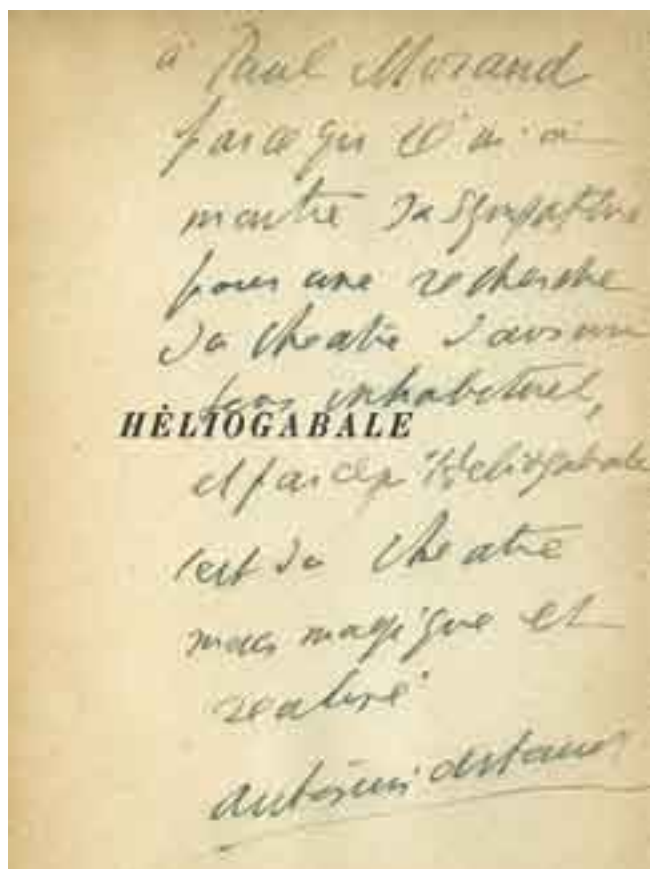 à Paul Morand
parce qu'il m'a
montré sa sympathie
pour une recherche
du theatre dans un
sens inhabituel,
HÉLIOGABALE
et parceq Heliogabale
c'est du theatre
mais magique et
realisé
antonin artaud